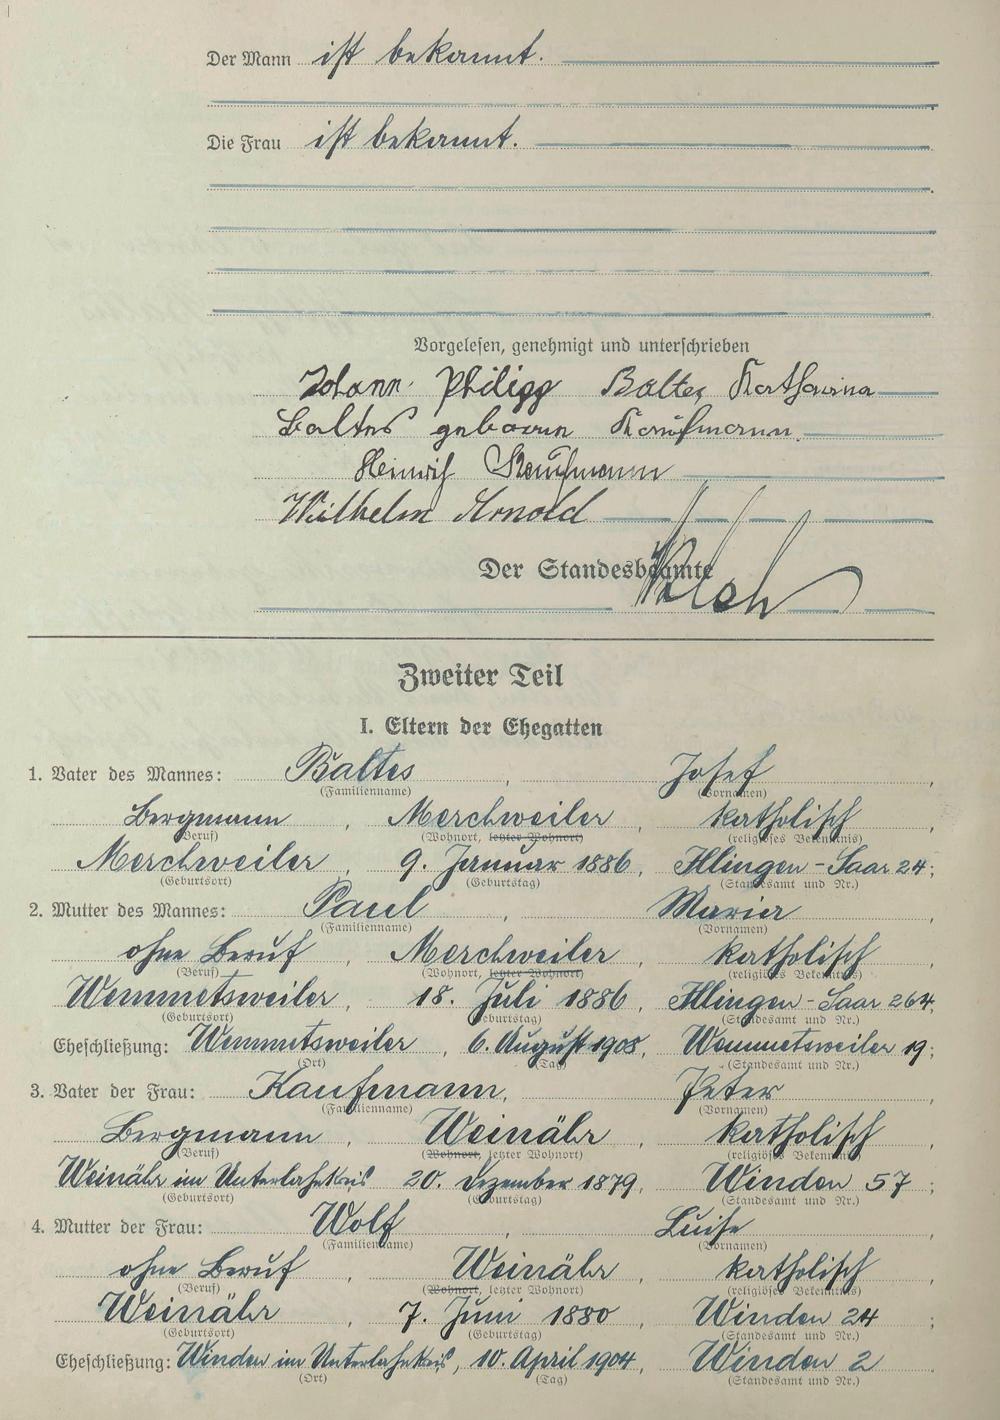 Der Mann ist bekannt.
Die Frau ist bekannt.
Vorgelesen, genehmigt und unterschrieben
Johann Philipp Baltes Katharina
Baltes geborene Kaufmann.
Heinrich Kaufmann
Wilhelm Arnold
Der Standesbeamte
Zweiter Teil
I. Eltern der Ehegatten
1. Vater des Mannes: Baltes, Josef,
(Familienname) (Vornamen)
Bergmann, Merchweiler, katholisch,
(Beruf) (Wohnort, letzter Wohnort) (religiöses Bekenntnis)
Merchweiler, 9. Januar 1886, Illingen-Saar 24;
(Geburtsort) (Geburtstag) (Standesamt und Nr.)
2. Mutter des Mannes: Paul, Maria,
(Familienname) (Vornamen)
ohne Beruf, Merchweiler, katholisch,
(Beruf) (Wohnort, letzter Wohnort) (religiöses Bekenntnis)
Wemmetsweiler, 18. Juli 1886, Illingen-Saar 264;
(Geburtsort) (Geburtstag) (Standesamt und Nr.)
Eheschließung: Wemmetsweiler, 6. August 1908, Wemmetsweiler 19;
(Ort) (Tag) (Standesamt und Nr.)
3. Vater der Frau: Kaufmann, Peter,
(Familienname) (Vornamen)
Bergmann, Weinähr, katholisch,
(Beruf) (Wohnort, letzter Wohnort) (religiöses Bekenntnis)
Weinähr im Unterlahnkreis 20. Dezember 1879, Winden 57;
(Geburtsort) (Geburtstag) (Standesamt und Nr.)
4. Mutter der Frau: Wolf, Luise,
(Familienname) (Vornamen)
ohne Beruf, Weinähr, katholisch,
(Beruf) (Wohnort, letzter Wohnort) (religiöses Bekenntnis)
Weinähr, 7. Juni 1880, Winden 24;
(Geburtsort) (Geburtstag) (Standesamt und Nr.)
Eheschließung: Winden im Unterlahnkreis, 10. April 1904, Winden 2
(Ort) (Tag) (Standesamt und Nr.)